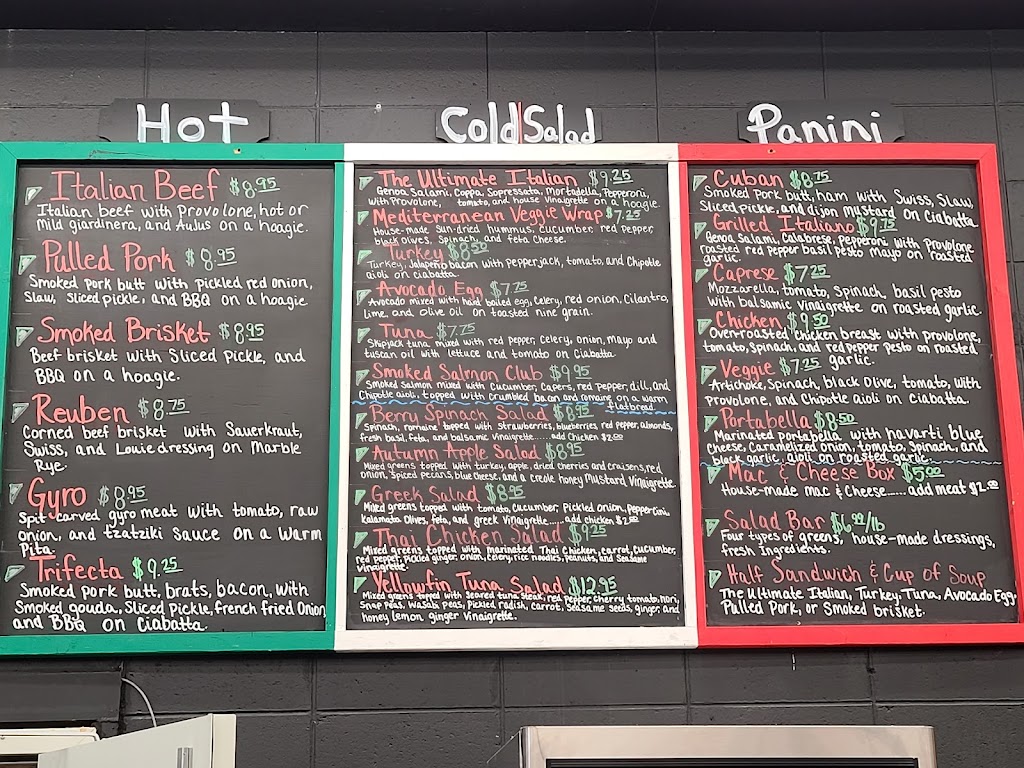 Hot
Italian Beef $8.95
Italian beef with Provolone, hot or
mild giardinera, and Aulus on a hoagie.
Pulled Pork $8.95
Smoked pork butt with pickled red onion,
Slaw, Sliced pickle, and BBQ on a hoagie
Smoked Brisket $8.95
Beef brisket with Sliced Pickle, and
BBQ on a hoagie.
Reuben $8.75
Corned beef brisket with Sauerkraut,
Swiss, and Louie dressing on Marble
Rye.
Gyro $8.95
Spit carved gyro meat with tomato, raw
onion, and tzatziki sauce on a warm
Pita
Trifecta $9.25
Smoked pork butt, brats, bacon, with
Smoked gouda, Sliced Pickle, french fried Onion
and BBQ on Ciabatta.
Cold Salad
The Ultimate Italian $9.25
Genoa Salami, Coppa, Sopressata, Mortadella, Pepperoni,
with Provolone, tomato, and house Vinaigrette on a hoagie.
Mediterranean Veggie Wrap $7.25
House-made Sun-dried hummus, cucumber, red Pepper,
black olives, Spinach, and feta Cheese.
Turkey $8.50
Turkey, Jalapeño bacon with pepperjack, tomato, and Chipotle
aioli on ciabatta.
Avocado Egg $7.75
Avocado mixed with hard boiled egg, celery, red onion, Cilantro,
Lime, and olive oil on toasted nine grain.
Tuna $7.75
Skipjack tuna mixed with red pepper, celery, onion, mayo and
tuscan oil with lettuce and tomato on Ciabatta.
Smoked Salmon Club $9.95
Smoked Salmon mixed with Cucumber, Capers, red pepper, dill, and
Chipotle aioli, topped with Crumbled bacon and romaine on a warm
flatbread.
Berry Spinach Salad $8.95
Spinach, romaine topped with strawberries, blueberries, red pepper, almonds,
fresh basil, feta, and balsamic Vinaigrette......add Chicken $2.00
Autumn Apple Salad $8.95
Mixed greens topped with turkey, apple, dried cherries and craisens, red
onion, Spiced pecans, blue Cheese, and a creole honey Mustard Vinaigrette.
Greek Salad $8.95
Mixed greens topped with tomato, Cucumber, Pickled Onion, Pepperoncini,
Kalamata Olives, feta, and greek Vinaigrette.....add chicken $2.00
Thai Chicken Salad $9.25
Mixed greens topped with marinated Thai Chicken, carrot, cucumber,
red pepper, Pickled ginger, onion, celery, rice noodles, peanuts, and Seasame
Vinaigrette.
Yellowfin Tuna Salad $12.95
Mixed greens topped with Seared tuna steak, red pepper, cherry tomato, nori,
Snap Peas, Wasabi peas, Pickled radish, carrot, Seasame seeds, ginger, and
honey lemon ginger vinaigrette.
Panini
Cuban $8.75
Smoked Pork butt, ham with Swiss, Slaw,
Sliced Pickle, and dijon mustard on Ciabatta
Grilled Italiano $9.75
Genoa Salami, Calabrese, pepperoni with provolone
roasted red pepper basil pesto mayo on roasted
garlic.
Caprese $7.25
Mozzarella, tomato, Spinach, basil pesto
with balsamic Vinaigrette on roasted garlic.
Chicken $9.50
Oven-roasted chicken breast with provolone,
tomato, Spinach, and red pepper pesto on roasted
garlic.
Veggie $7.25
Artichoke, Spinach, black Olive, tomato, with
Provolone, and Chipotle aioli on Ciabatta.
Portabella $8.50
Marinated portabella with navarti blue
Cheese, Caramelized onion, tomato, Spinach, and
black garlic, aioli on roasted garlic.
Mac & Cheese Box $5.00
House-made mac & Cheese......add meat $2.00
Salad Bar $6.99/lb
Four types of greens, house-made dressings,
fresh Ingredients.
Half Sandwich & Cup of Soup
The Ultimate Italian, Turkey, Tuna, Avocado Egg
Pulled Pork, or Smoked brisket.